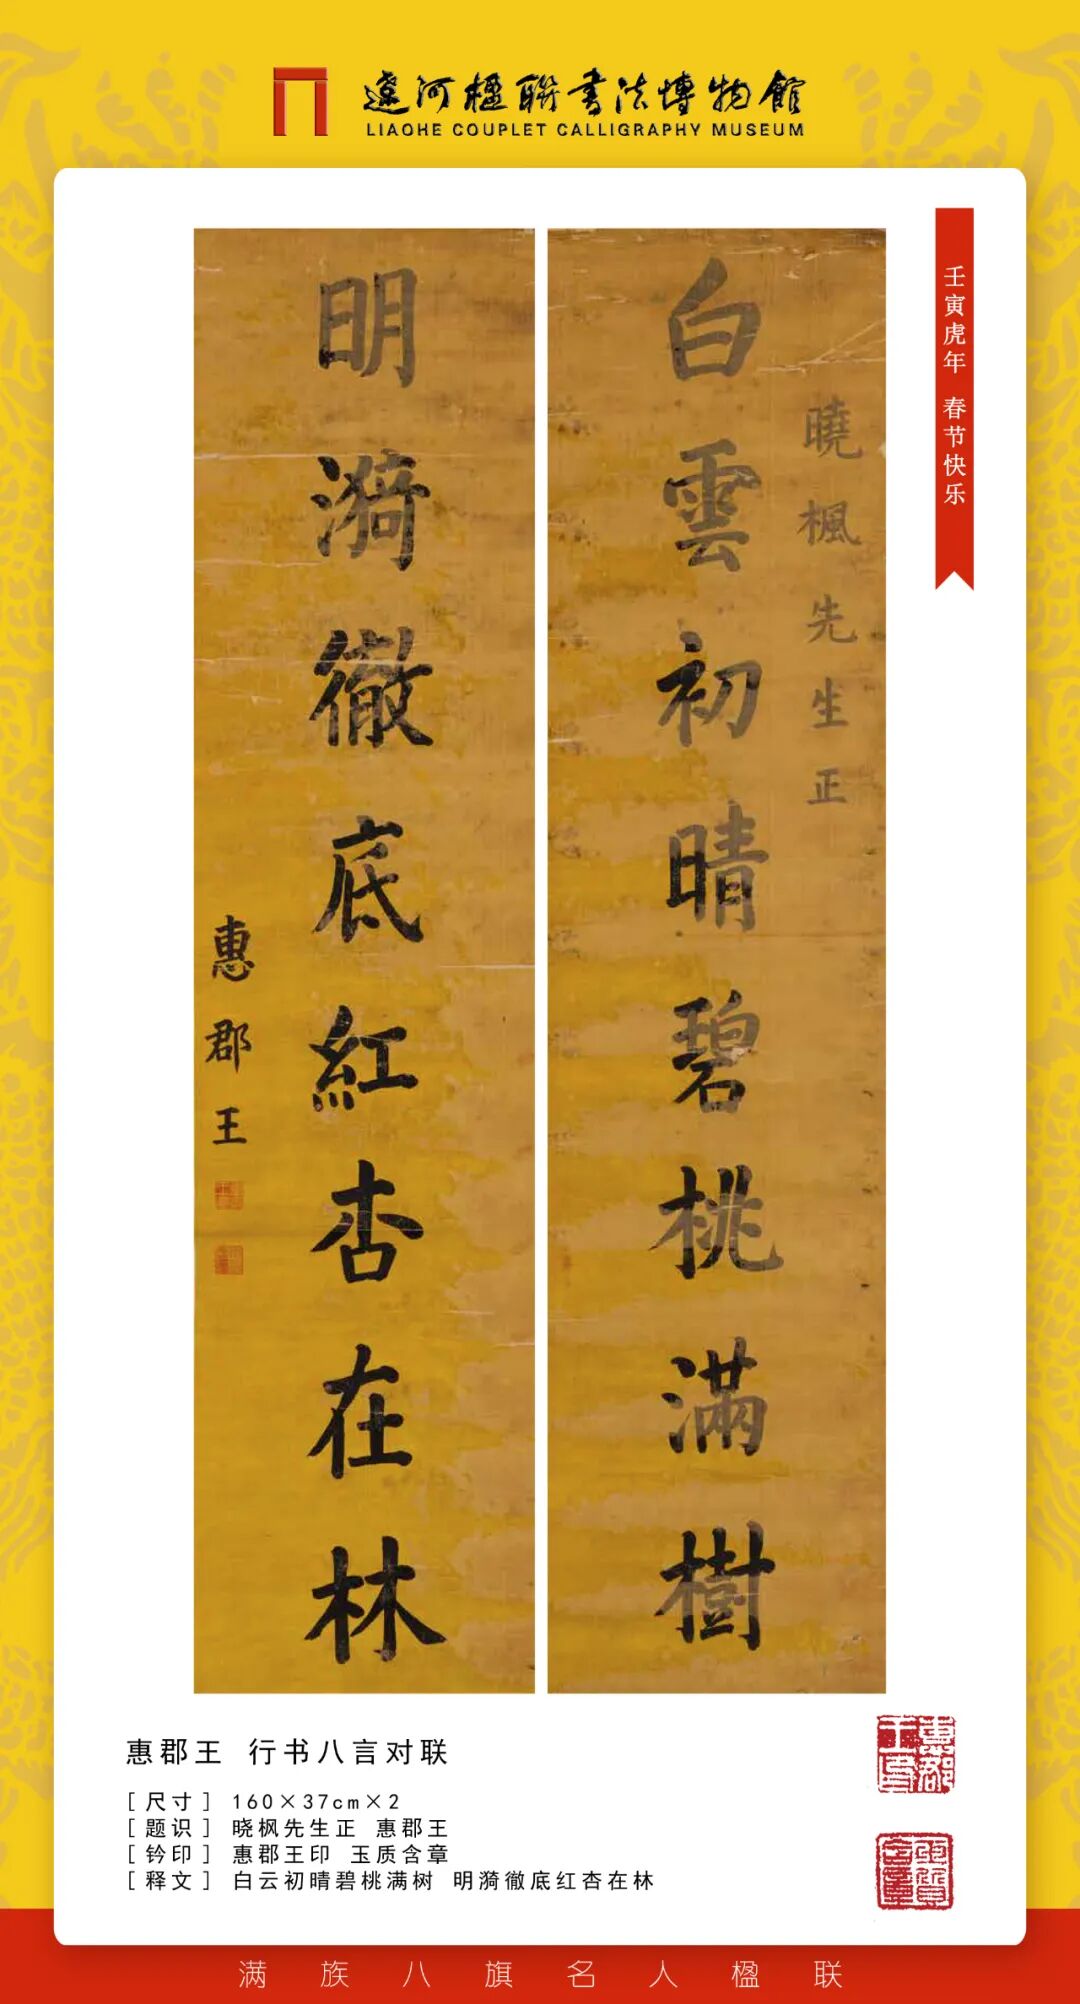 遼河楹聯書法博物館
LIAOHE COUPLET CALLIGRAPHY MUSEUM
壬寅虎年 春节快乐
曉楓先生正
白雲初晴碧桃滿樹
明漪徹底紅杏在林
惠郡王
惠郡王 行书八言对联
[尺寸] 160×37cm×2
[题识] 晓枫先生正 惠郡王
[钤印] 惠郡王印 玉质含章
[释文] 白云初晴碧桃满树 明漪徹底红杏在林
惠郡王印
玉質含章
满族八旗名人楹联